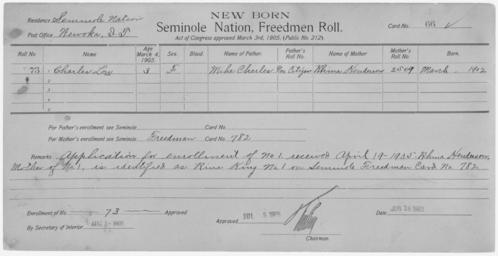 NEW BORN
Residence Seminole Nation
Post Office Wewoka, I.T.
Seminole Nation, Freedmen Roll.
Card No. 66
Act of Congress approved March 3rd, 1905. (Public No. 212).
Roll No. Name Age March 4, 1905. Sex. Blood. Name of Father. Father's Roll No. Name of Mother Mother's Roll No. Born.
73 Charles 3 F Mike Charles Non Citizen Rhina Henderson March 1902
2
3
4
For Father's enrollment see Seminole Card No.
For Mother's enrollment see Seminole Freedman Card No. 782
Remarks Application for enrollment of No 1 received April 19-1905. Rhina Henderson,
Mother of No 1, is identified as King No 1 on Seminole Freedman Card No 782
Enrollment of No. 73 Approved
By Secretary of Interior
Approved
Chairman